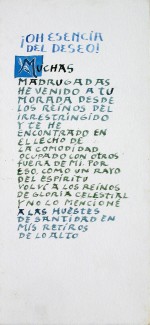 ¡OH ESENCIA
DEL DESEO!
MUCHAS
MADRUGADAS
HE VENIDO A TU
MORADA DESDE
LOS REINOS DEL
IRRESTRINGIDO
Y TE HE
ENCONTRADO EN
EL LECHO DE
LA COMODIDAD
OCUPADO CON OTROS
FUERA DE MI. POR
ESO, COMO UN RAYO
DEL ESPÍRITU
VOLVÍ A LOS REINOS
DE GLORIA CELESTIAL
Y NO LO MENCIONÉ
A LAS HUESTES
DE SANTIDAD EN
MIS RETIROS
DE LO ALTO